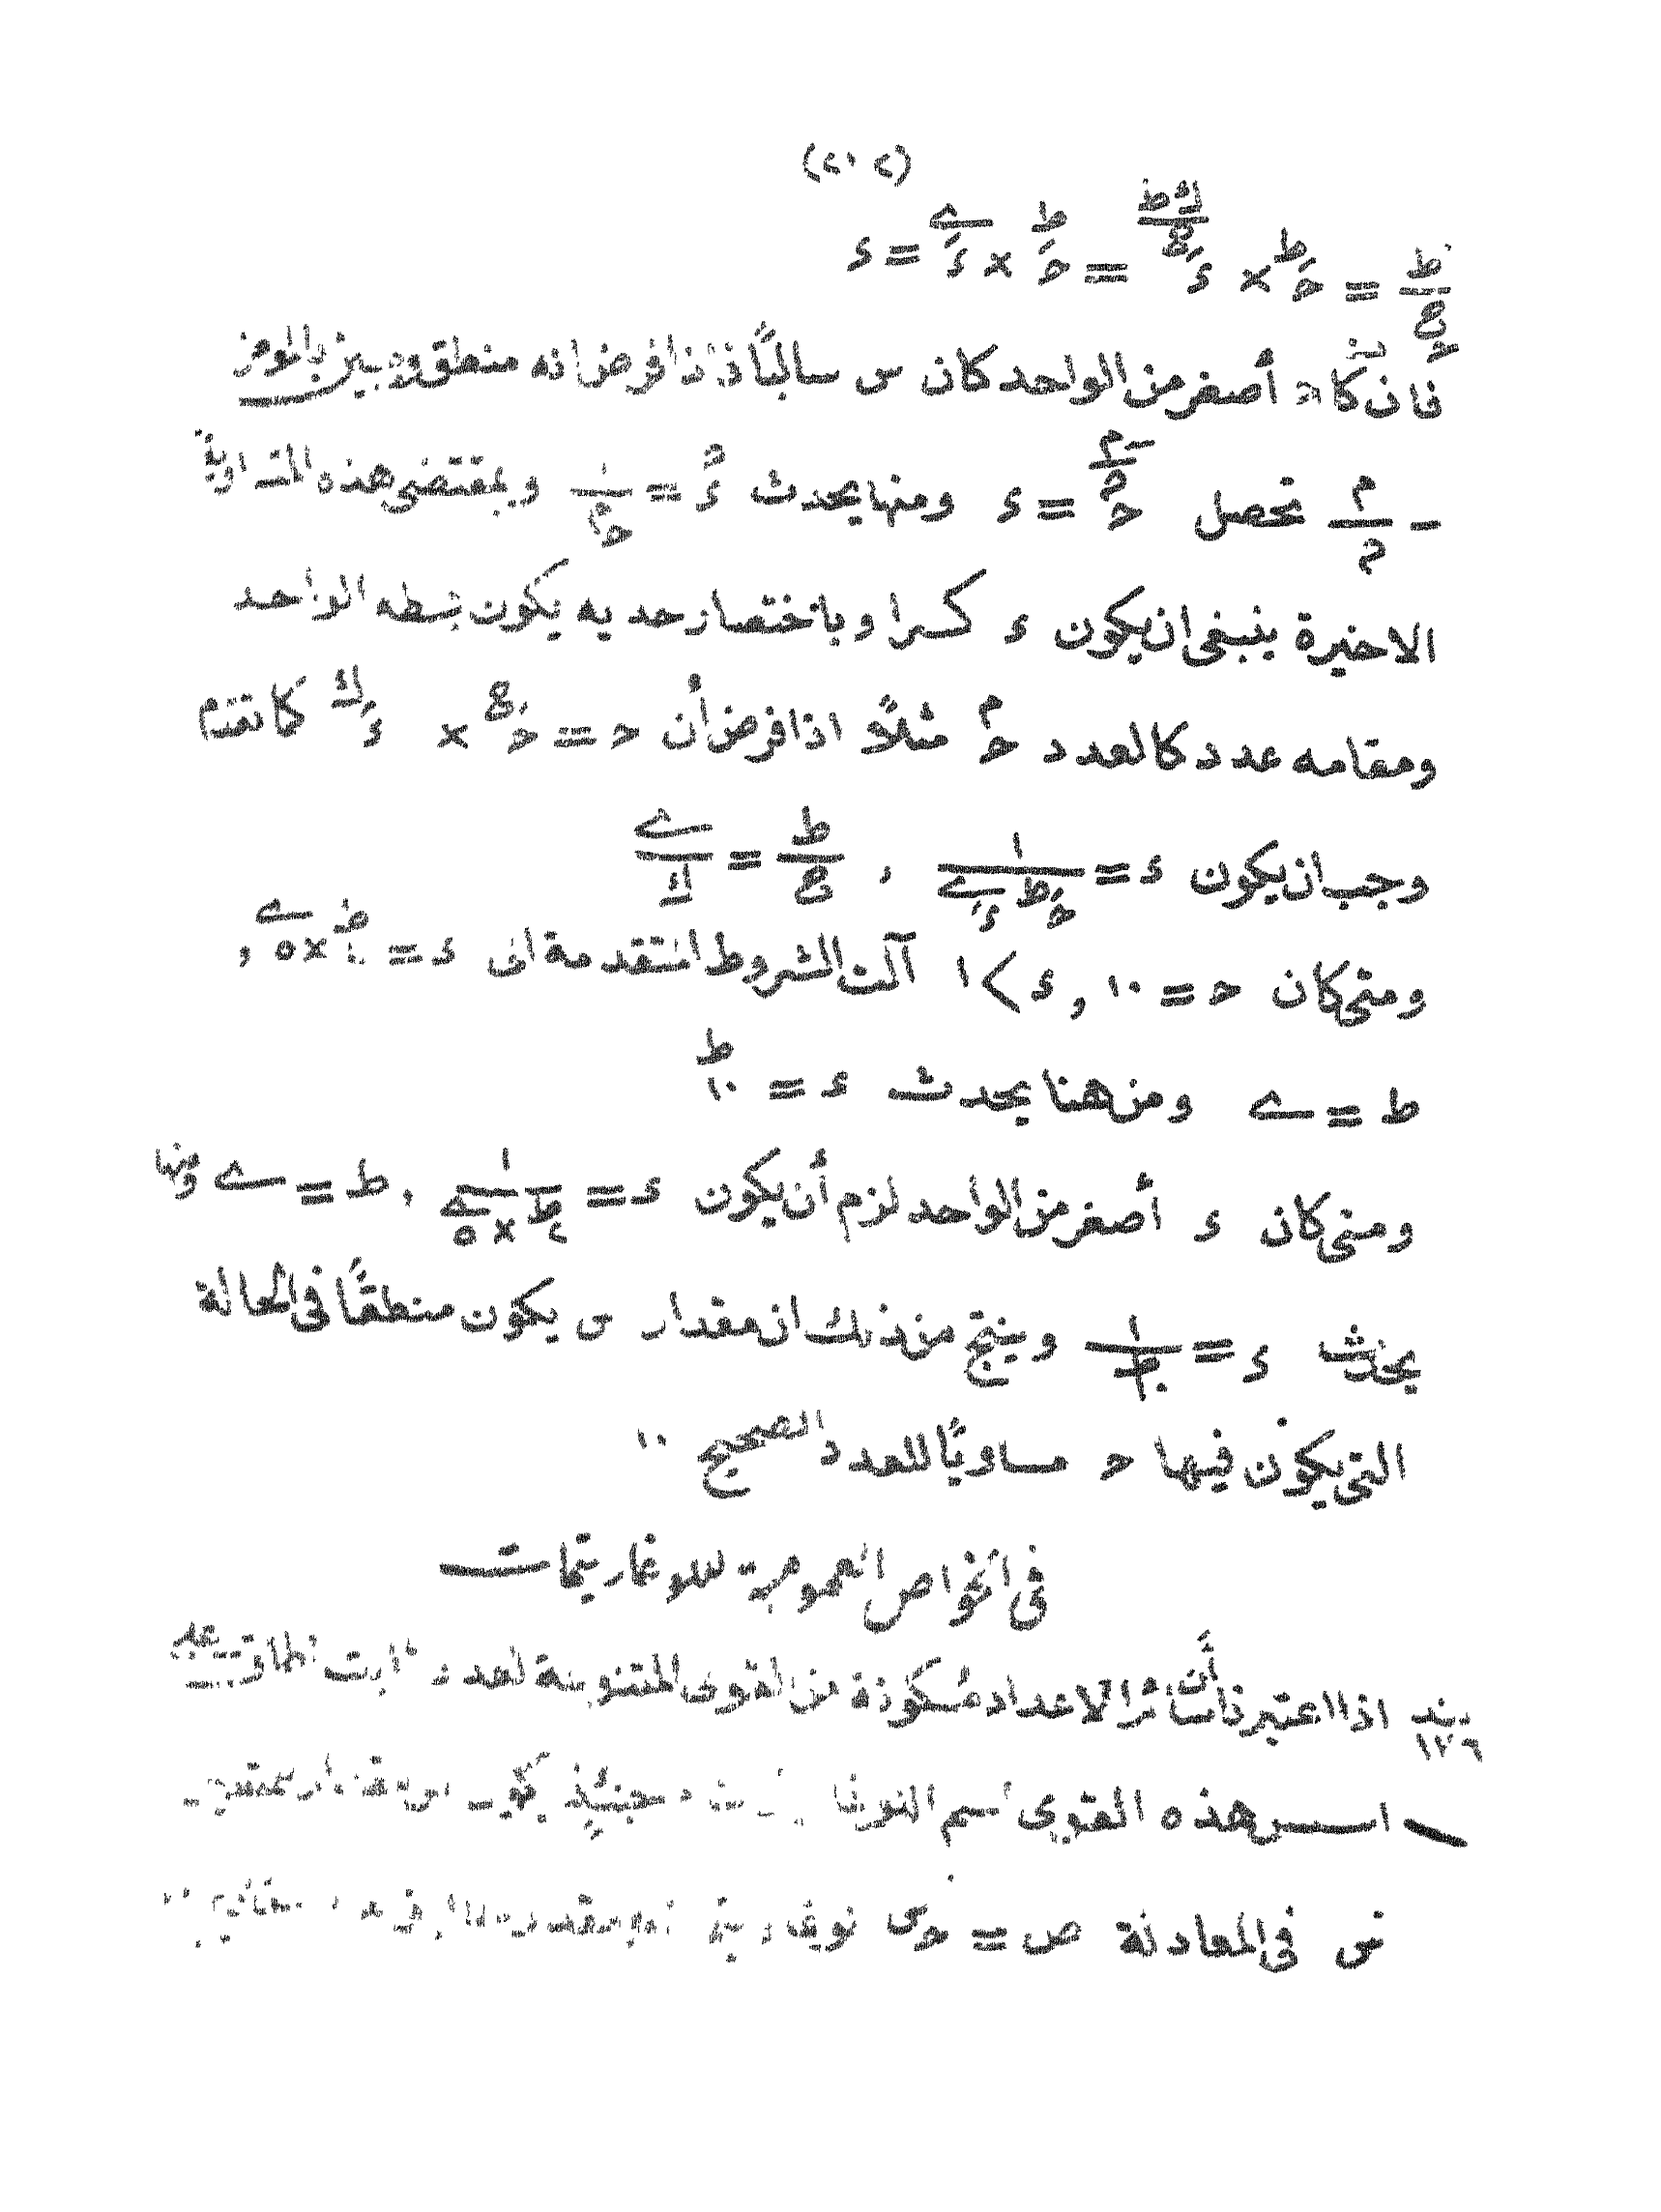 (٢٠٢)
ط/ع = حَ ط × ءَ ك ط/ع = حَ ط × ءَ ى = ء
فان كان د أصغر من الواحد كان س سالبًا فاذا فرض انه منطق وبين بالرمز
- م/ن تحصل ح -م/ن = ء ومنها يحدث ء ن = ١/ح م وبمقتضى هذه المتساوية
الاخيرة ينبغى ان يكون ء كسرا وباختصار حديه يكون بسطه الواحد
ومقامه عدد كالعدد ح م مثلاً اذا فرض أن ح = حَ ع × ءَ ك كما تقدم
وجب ان يكون ء = ١/حَ ط ءَ ى , ط/ع = ى/ك
ومتى كان ح = ١٠ , ء > ١ آلت الشروط المتقدمة الى ء = ٢ ط × ٥ ى ,
ط = ى ومن هنا يحدث ء = ١٠ ط
ومتى كان ء أصغر من الواحد لزم أن يكون ء = ١/٢ ط × ٥ ى , ط = ى ومنها
يحدث ء = ١/١٠ ط وينتج من ذلك ان مقدار س يكون منطقًا فى الحالة
التى يكون فيها ح مساويًا للعدد الصحيح ١٠
فى الخواص العمومية للوغاريتمات
بند ١٢٦ اذا اعتبر ذا أن سائر الاعداد مكونة من القوى المتنوعة لعدد ثابت اطلق على
اسس هذه القوى اسم اللوغا حينئذ يكون
س فى المعادلة ص = ح س لوغار يتم